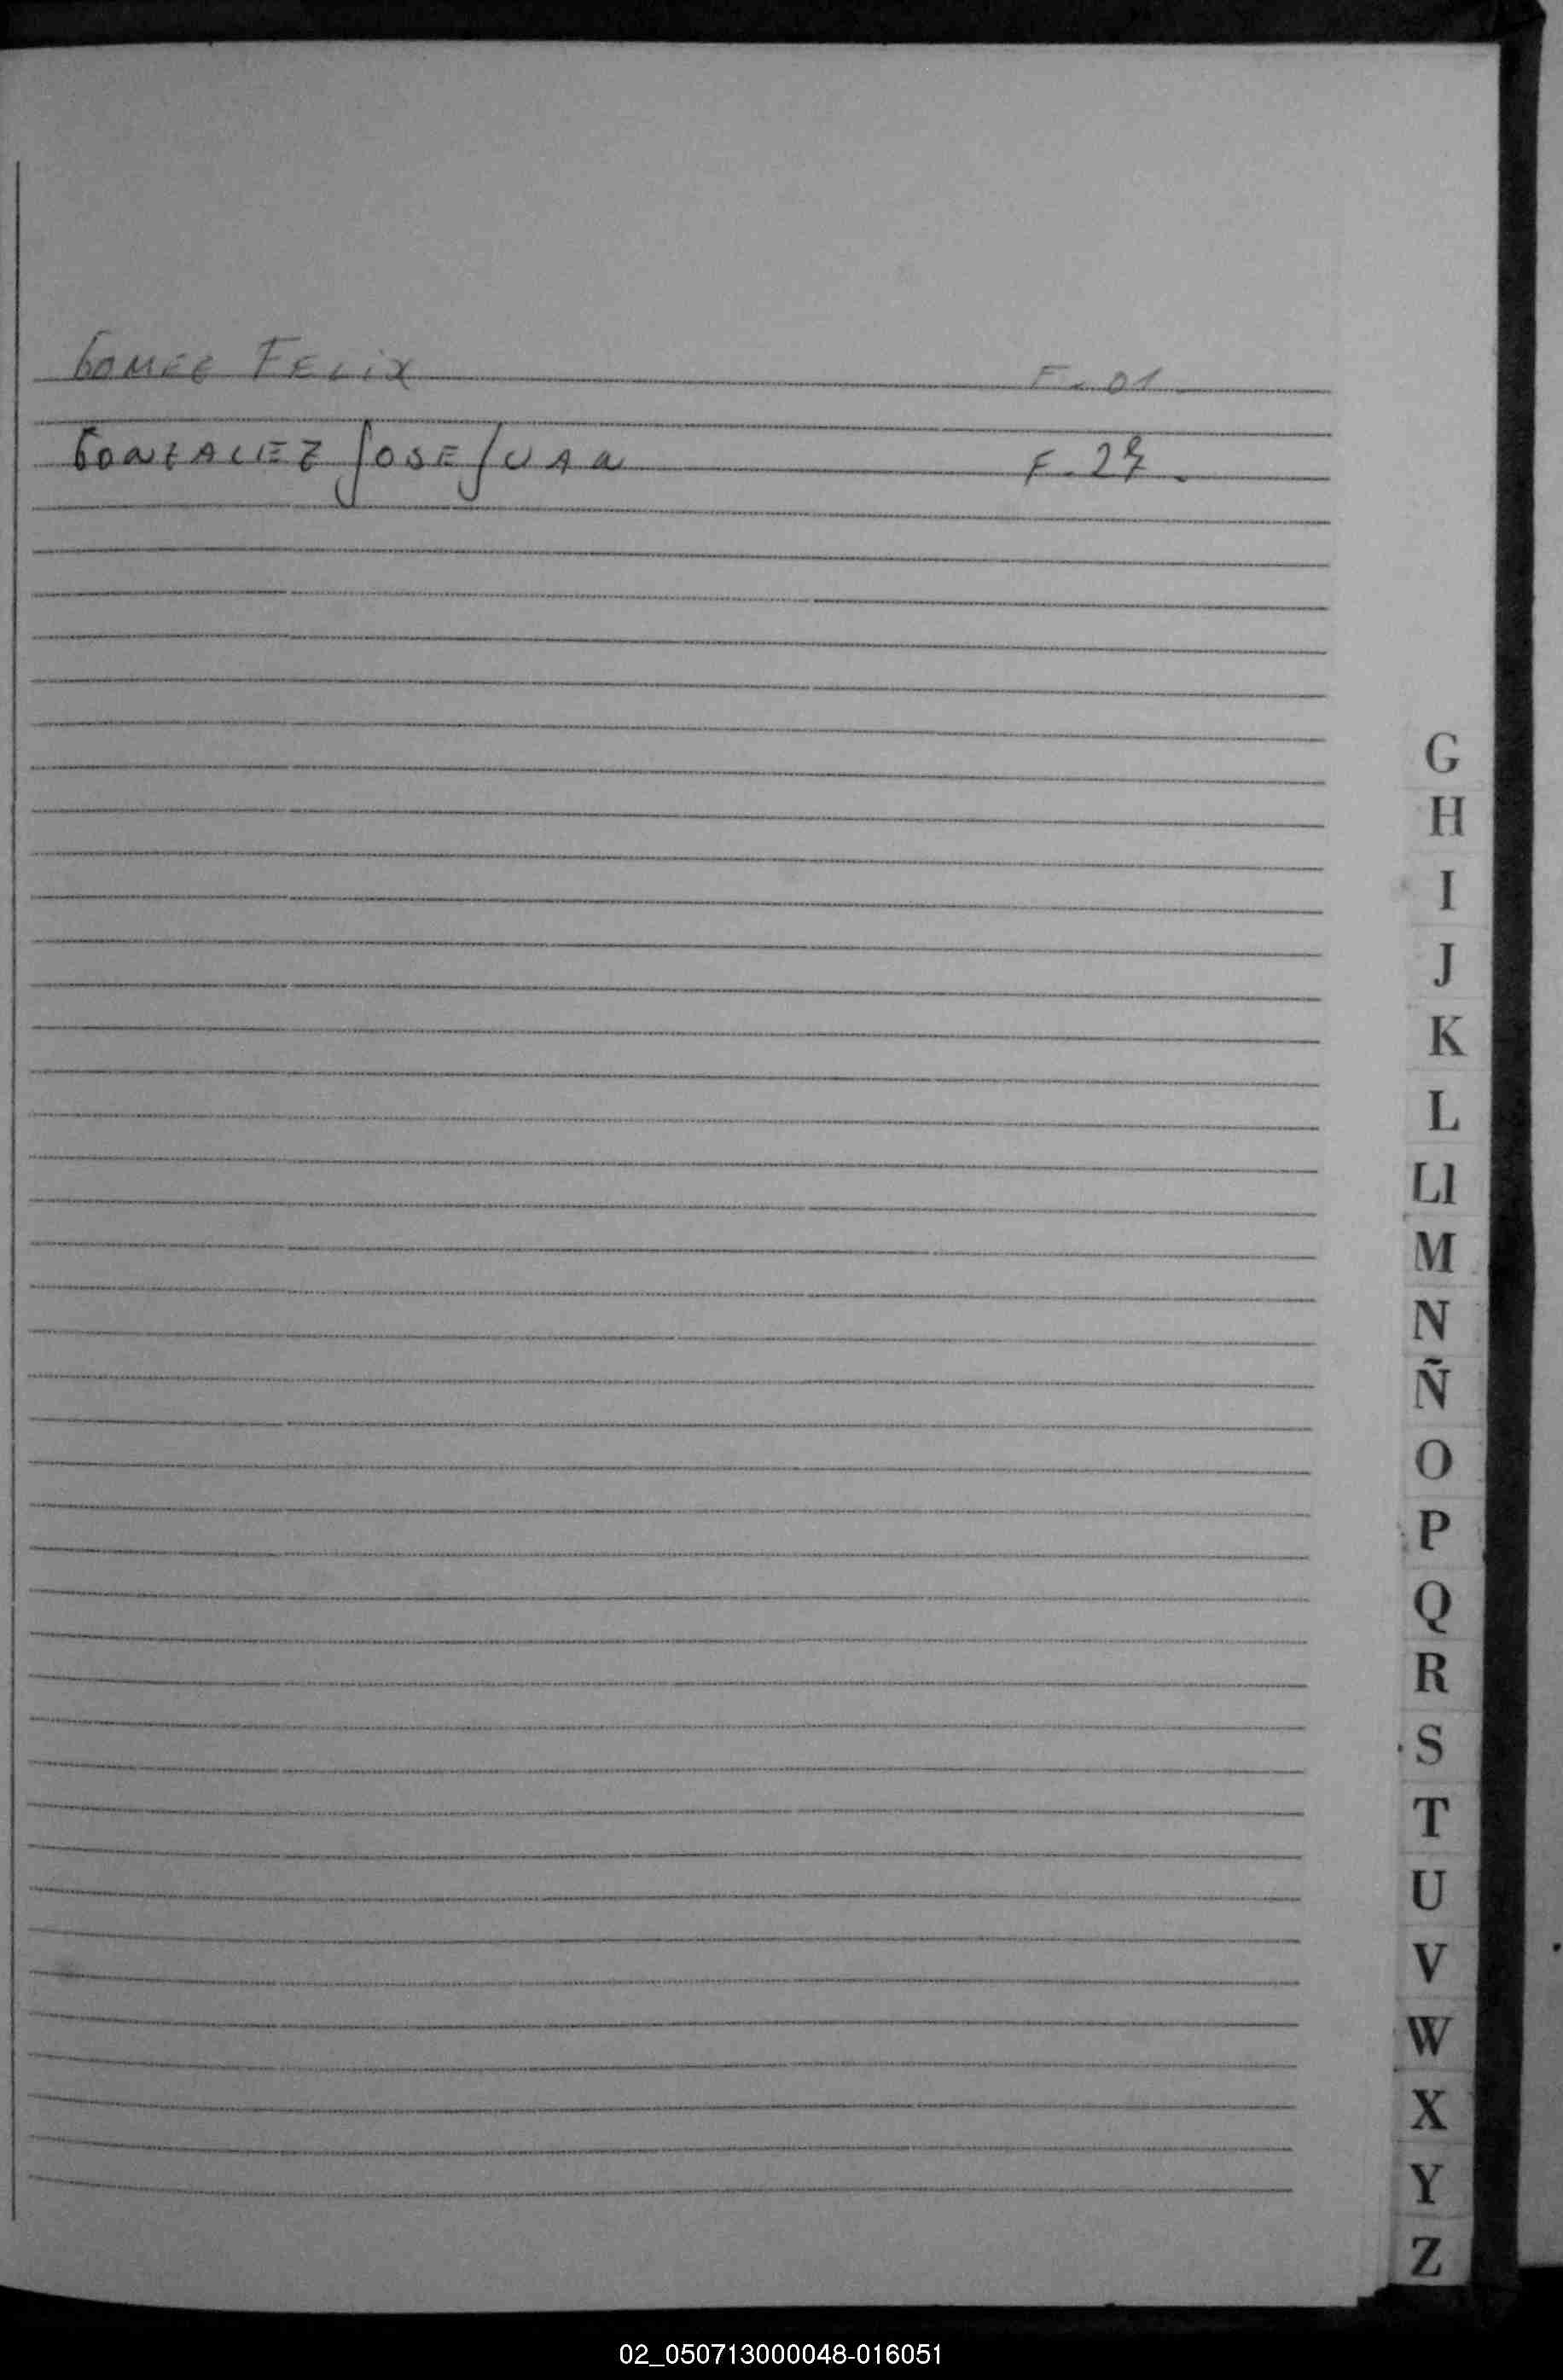 GOMEZ FELIX F. 01
GONZALEZ JOSE JUAN F.
G
H
I
J
K
L
Ll
M
N
Ñ
O
P
Q
R
S
T
U
V
W
X
Y
Z
02_050713000048-016051